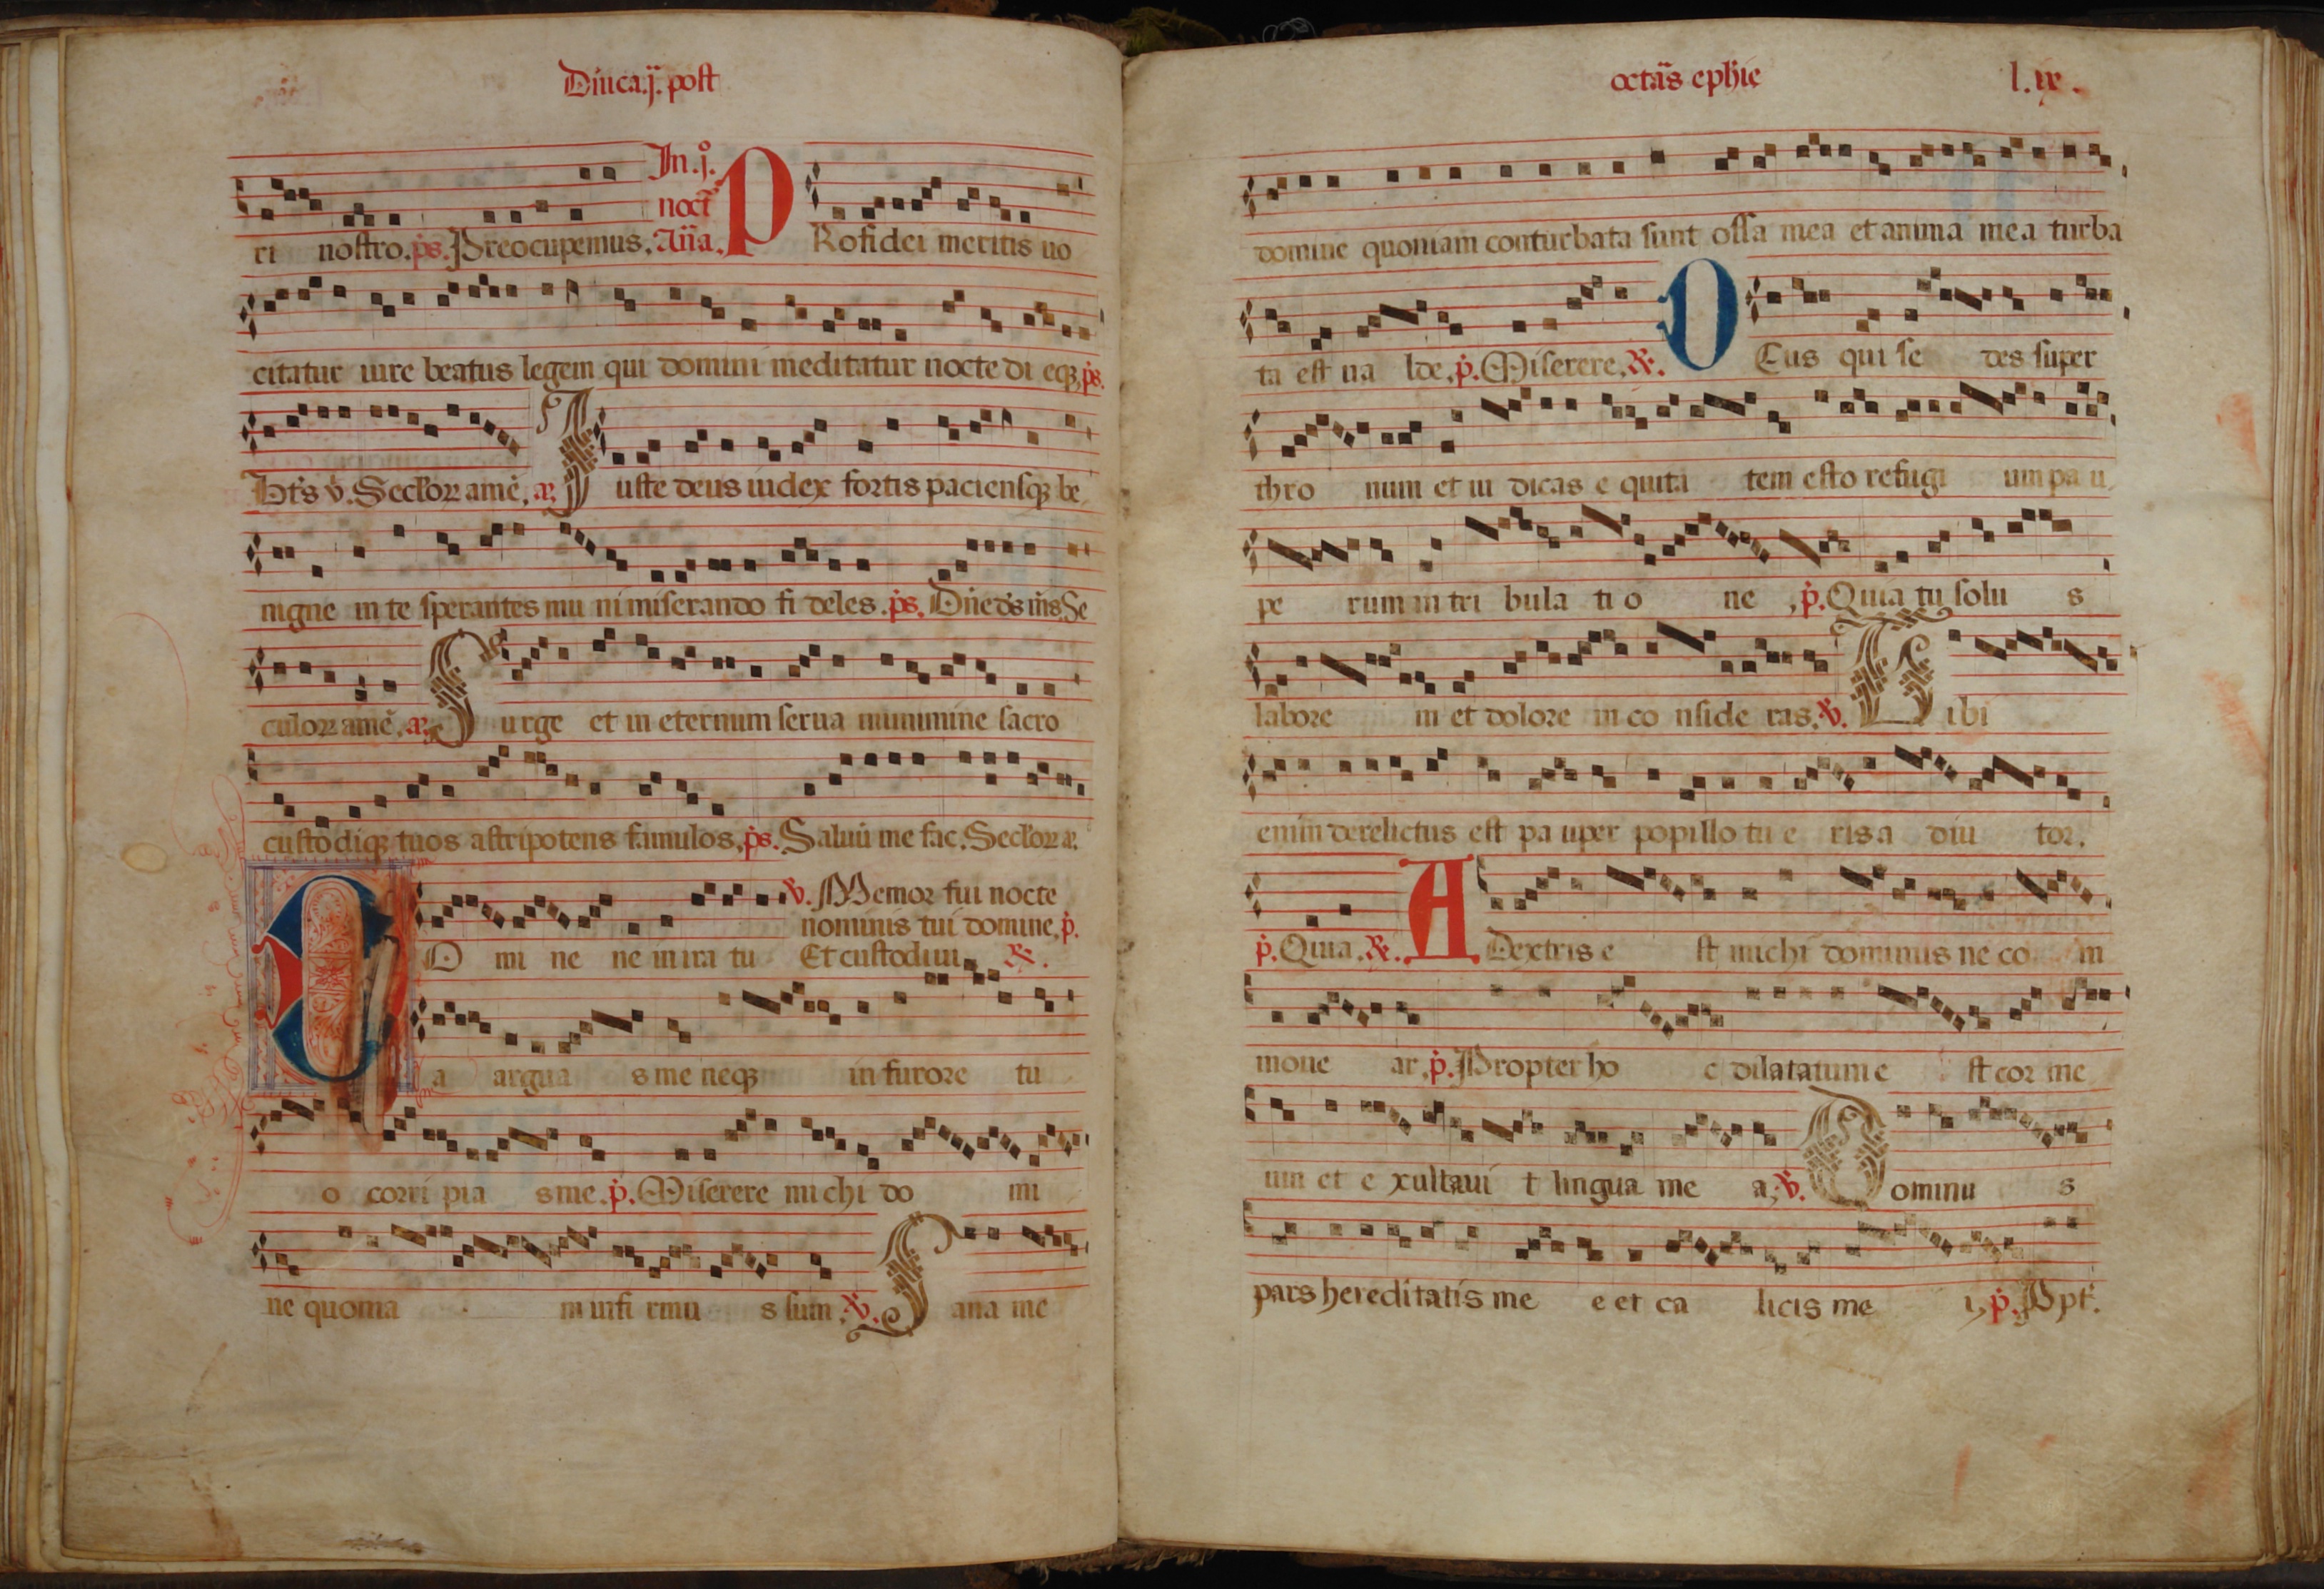 Dnica.ij. post
In.j.
noct
ri nostro. ps. Preocupemus. Ana. PRo fidei meritis uo
citatur iure beatus legem qui domini meditatur nocte di eqȝ, ps.
Bts v. Seclor amē. a. Juste deus iudex fortis paciensqȝ be
nigne in te sperantes mu ni miserando fi deles. ps. Dn̄e ds ms. Se
culor amē. a. Surge et in eternum serua munimine sacro
custodiqȝ tuos astripotens famulos, ps. Saluū me fac. Seclor a.
v. Memor fui nocte
nominis tui domine, p.
DO mi ne ne in ira tu Et custodiui. R.
a argua s me neqȝ in furore tu
o corri pia s me. p. Miserere michi do mi
ne quonia m infi rmu s sum. v. Sana me
octās ephie l.ix.
domine quoniam conturbata sunt ossa mea et anima mea turba
ta est ua lde, p. Miserere. R. DEus qui se des super
thro num et iu dicas e quita tem esto refugi um pa u
pe rum in tri bula ti o ne, p. Quia tu solu s
labore m et dolore m co nside ras. v. Tibi
enim derelictus est pa uper popillo tu e ris a diu tor.
p. Quia. R. A Dextris e st michi dominus ne co m
moue ar, p. Propter ho c dilatatum e st cor me
um et e xultaui t lingua me a, v. Dominu s
pars hereditatis me e et ca licis me i, p. Ppt.